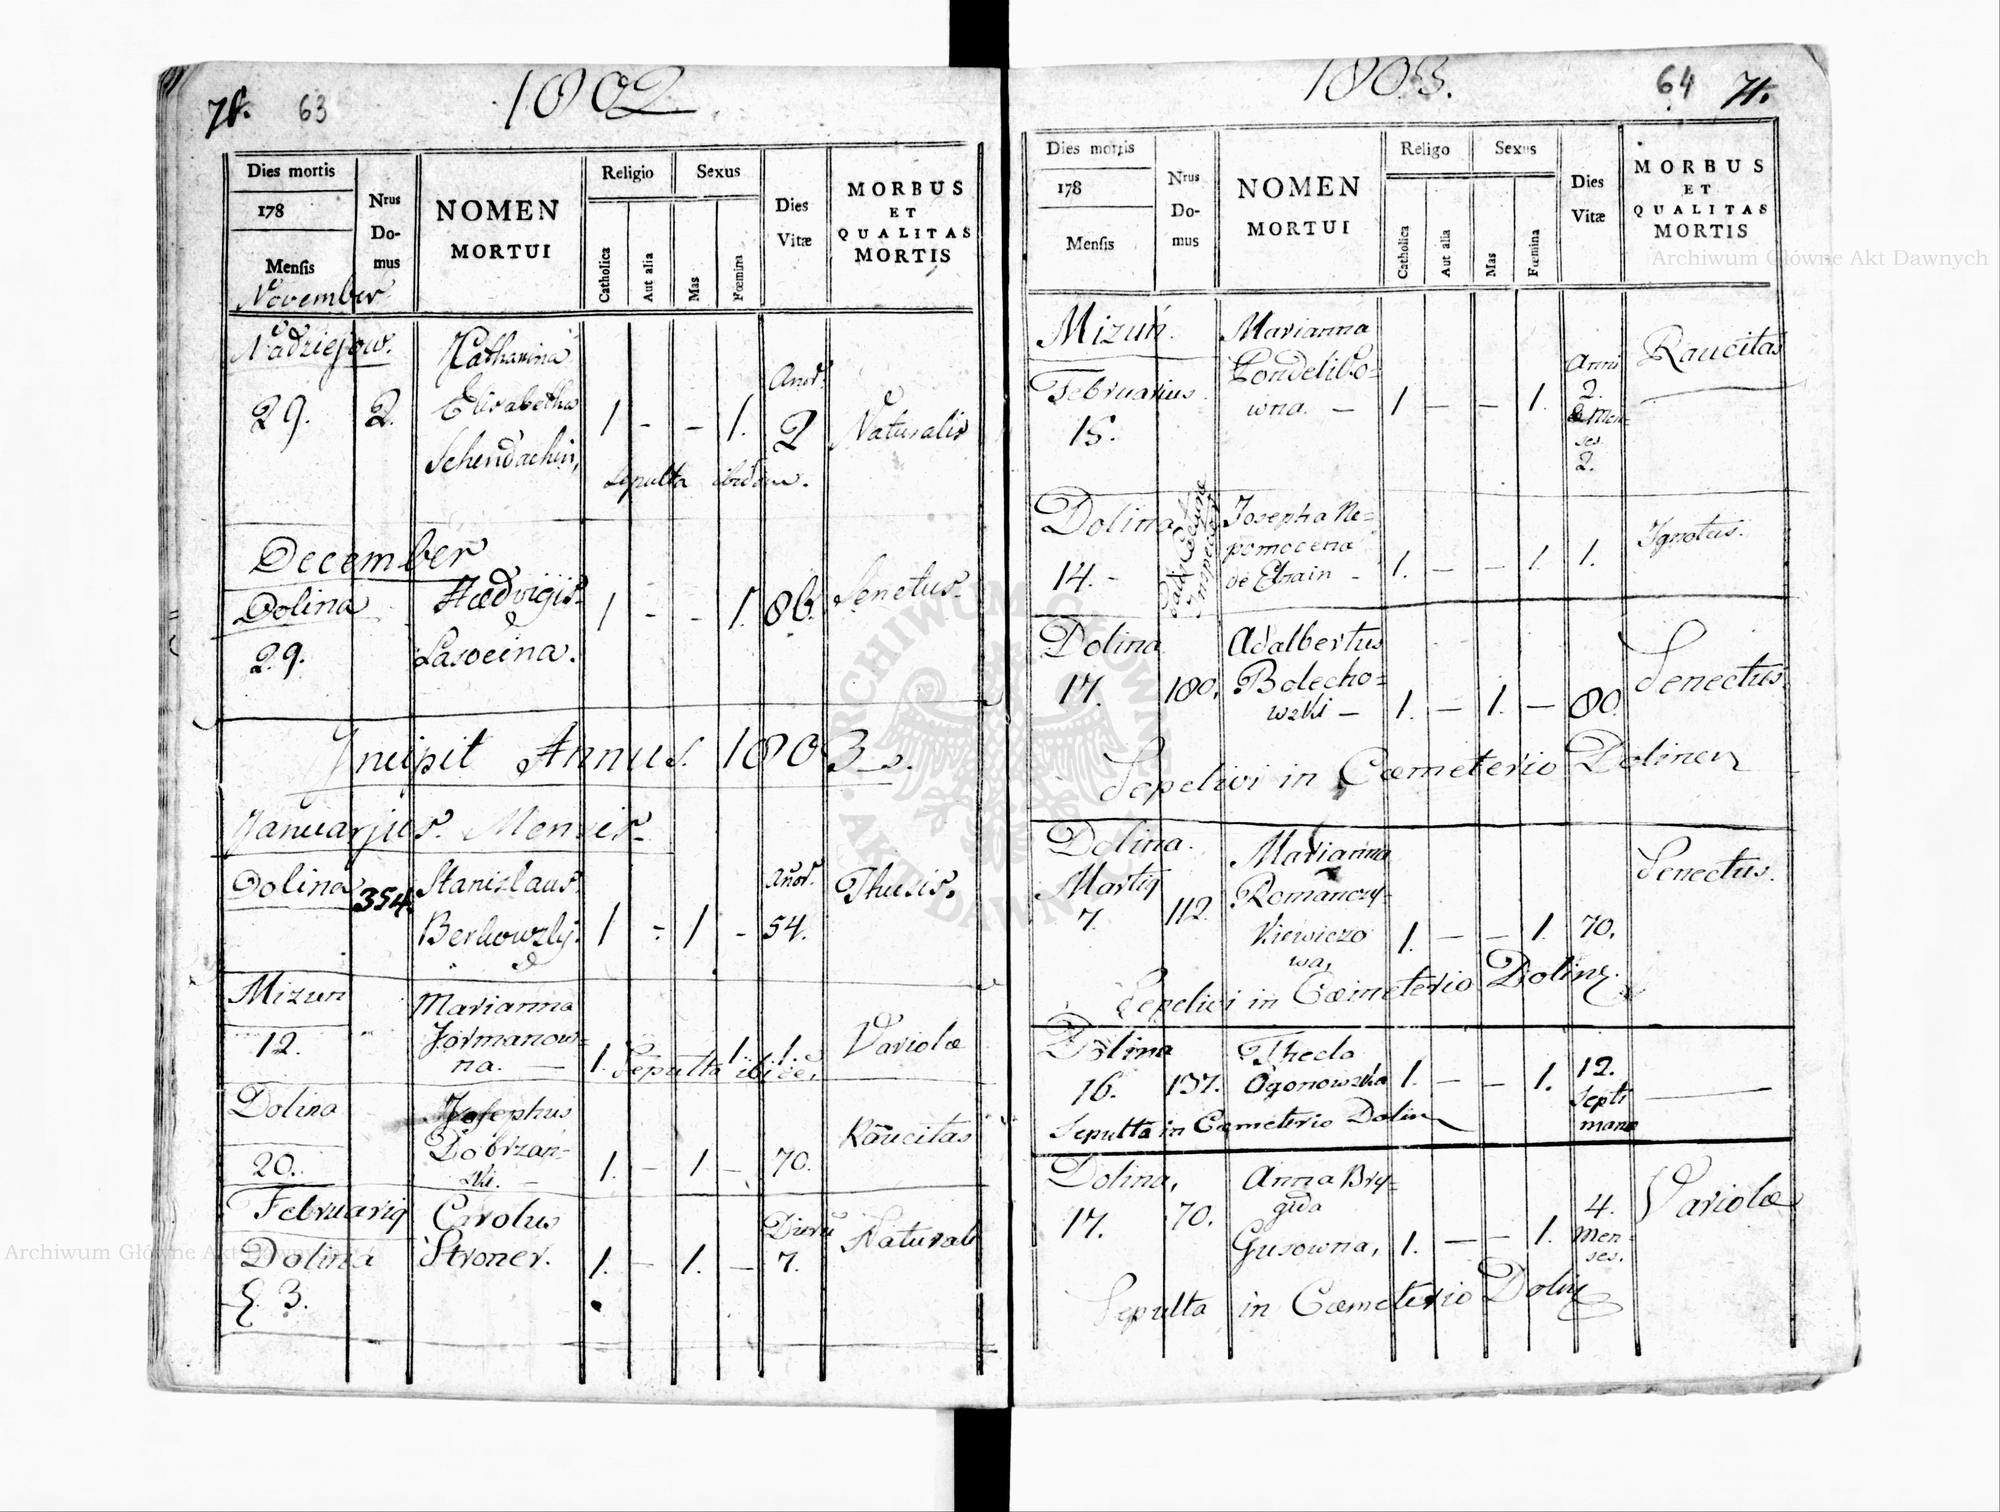 63
1802
Dies mortis
178
Mensis
November
Nrus
Do-
mus
NOMEN
MORTUI
Religio
Catholica
Aut alia
Sexus
Mas
Fœmina
Dies
Vitæ
MORBUS
ET
QUALITAS
MORTIS
Nadziejow.
29.
2.
Catharina
Elisabetha
Schendachin,
1 - - 1.
Anor.
2
Naturalis
Sepulta ibidem.
December
Dolina
29.
Hedvigis
Lasocina.
1 - - 1.
86.
Senectus.
Incipit Annus 1803
Januarjus Mensis
Dolina
354.
Stanislaus
Berkowzky.
1 - 1 -
Anor.
54.
Thusis.
Mizun
12.
Marianna
Jormanow=
na. —
1. 1. 1.
Sepulta ibide.
Variolæ
Dolina
20.
Josephus
Dobrzan-
ski. -
1. - 1 -
70.
Raucitas
Februariq
Dolina
3.
Carolus
Stroner.
1. - 1. -
Dieru
7.
Natural
1803.
64
71.
Dies mortis
178
Mensis
Nrus
Do-
mus
NOMEN
MORTUI
Religo
Catholica
Aut alia
Sexus
Mas
Fœmina
Dies
Vitæ
MORBUS
ET
QUALITAS
MORTIS
Mizuń.
Februarius.
15.
Marianna
Londelibo=
wna. —
1 — — 1.
Anni
2.
Men-
ses
2.
Raucitas
Dolina
14. -
Inspector
Josepha Ne=
pomocena
de Ebain -
1. - - 1.
1.
Ignotus.
Dolina
17.
180.
Adalbertus
Bolecho=
wski —
1. — 1. —
80.
Senectus.
Sepelivi in Cœmeterio Dolinen
Dolina.
Martiq
7.
112.
Marianna
Romanczy-
kiewiczo
wa,
1. — — 1.
70.
Senectus.
Sepelivi in Cœmeterio Dolin.
Dolina
16.
137.
Thecla
Ogonowska
1. — — 1.
12.
Septi
mana
Sepulta in Cœmeterio Dolin
Dolina,
17.
70.
Anna Bry-
gida
Gusowna,
1. — — 1.
4.
Men-
ses.
Variolæ
Sepulta in Cœmeterio Dolin
Archiwum Główne Akt Dawnych
Archiwum Główne Akt Dawnych
ARCHIWUM GŁÓWNE AKT DAWNYCH